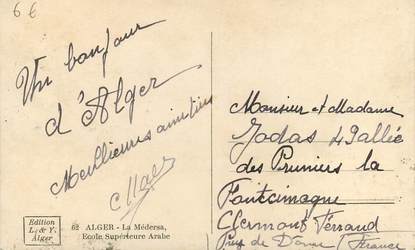 6€
Un bonjour
d'Alger
Meilleures amitiés
Monsieur et Madame
Jodas 49 allée
des Pruniers la
Fontcimagne
Clermont Ferrand
Puy de Dome France
Edition
L. & Y.
Alger
62 ALGER - La Médersa,
Ecole Supérieure Arabe